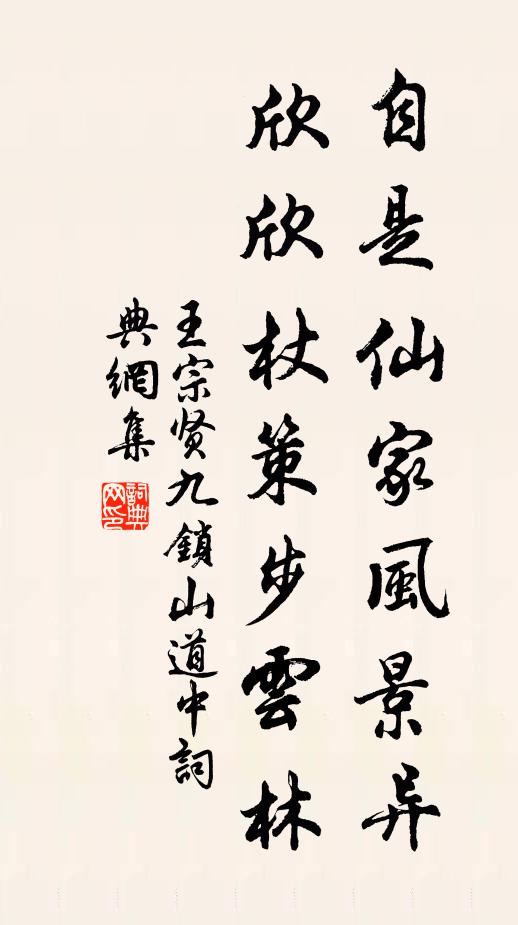 自是仙家風景异
欣欣杖策步雲林
王宗贤九鎖山道中詞
典網集
詞典网印